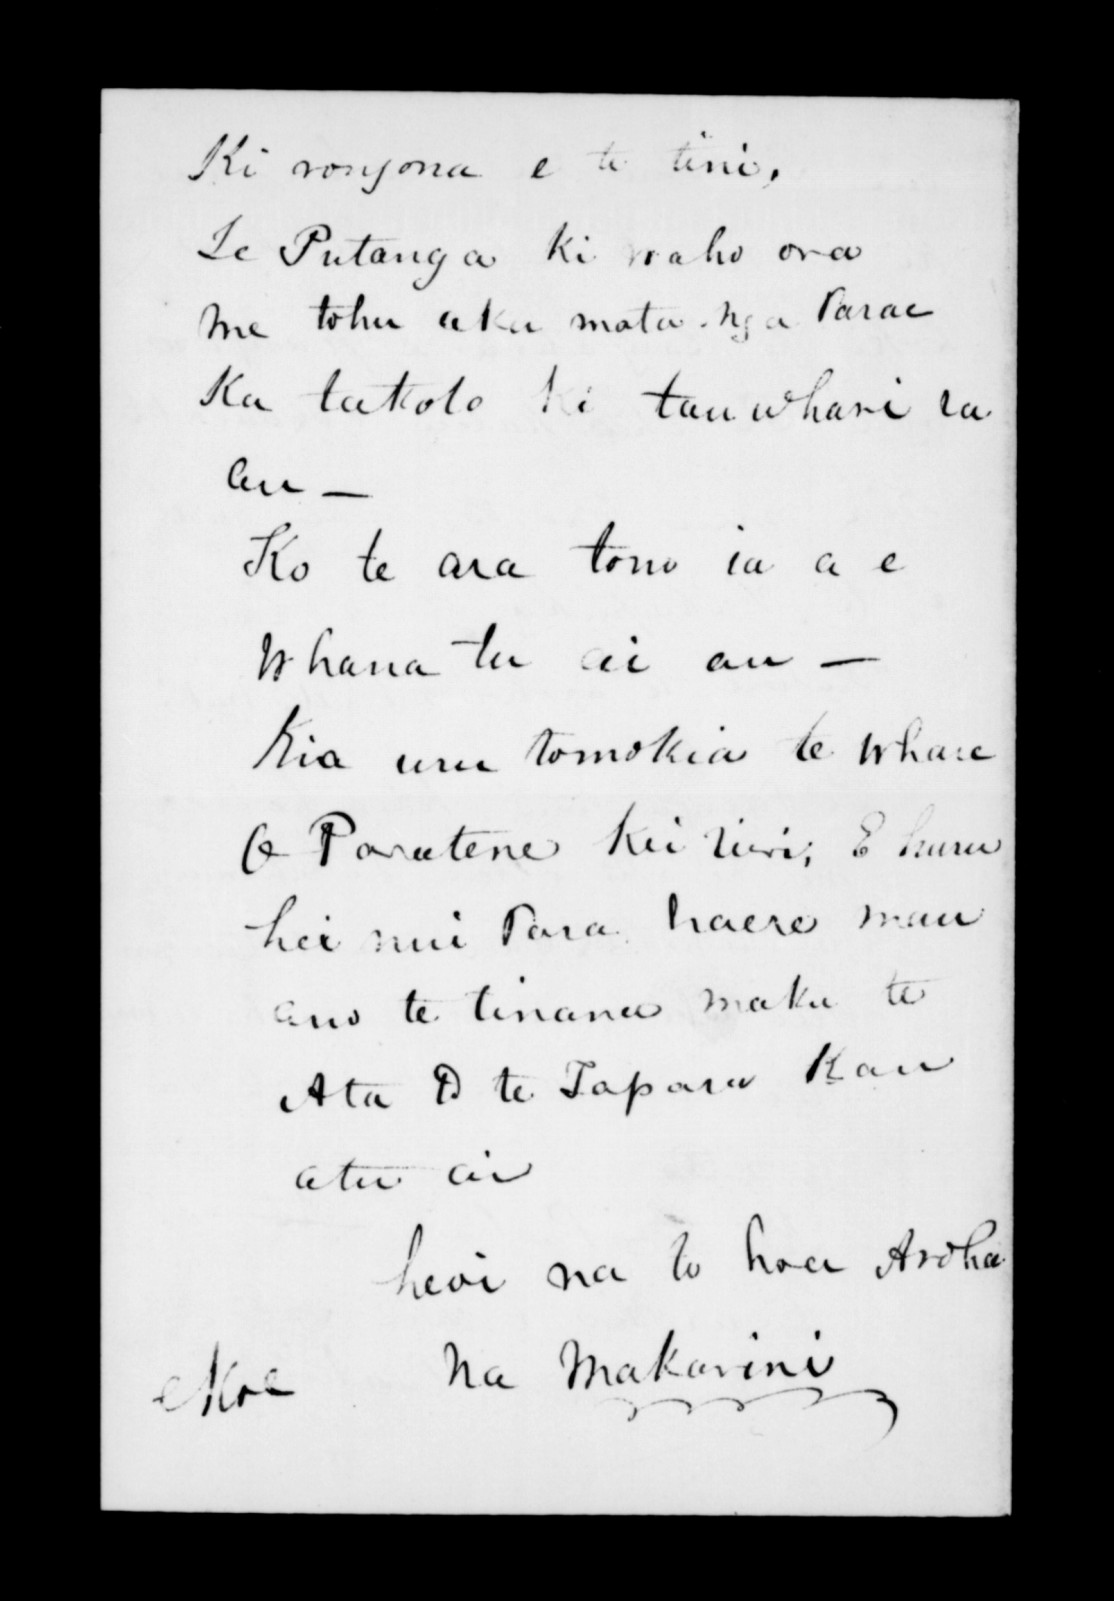 Ki rongona e te tini,
Te Putanga ki waho ora
me tohu aku mata nga Parae
Ka takoto ki tauwhari ra
au —
Ko te ara tonu ia a e
Whana tu ai au —
Kia uru tomokia te Whare
O Paratene kei riwi, E huru
hei mii Para haere mau
ano te tinana maku te
Ata O te Taparu Kau
atu ai
heoi na to hoa Aroha
Na Makarini